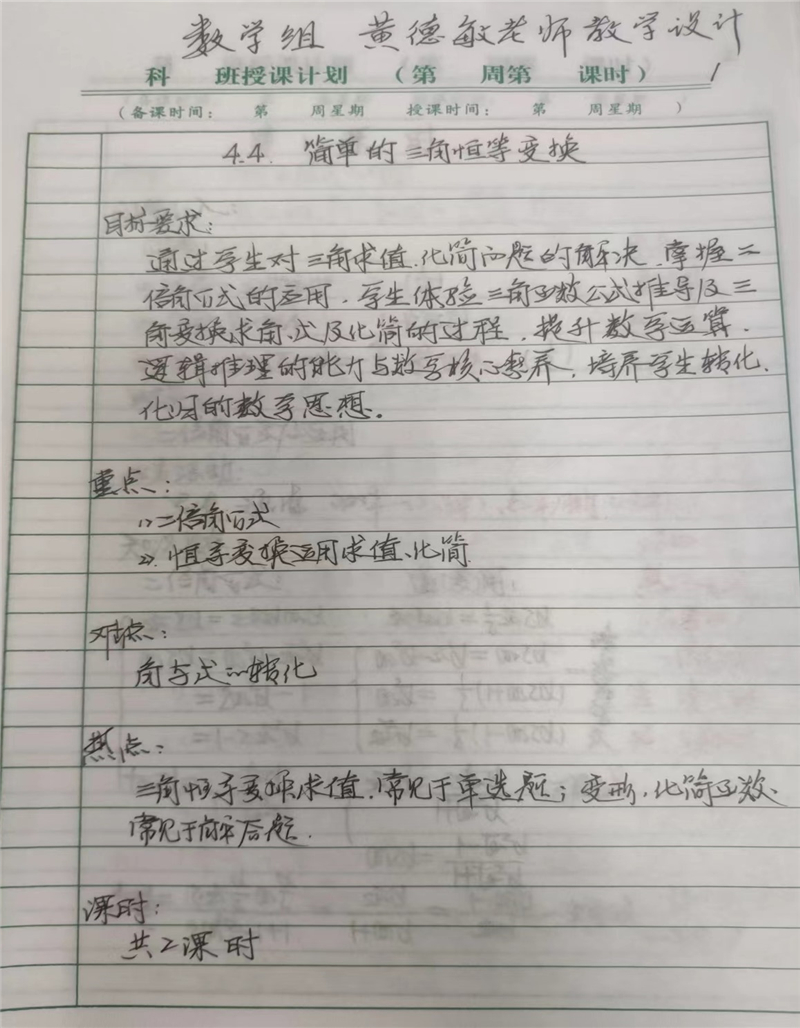 数学组 黄德敏老师教学设计
科 班授课计划 （第 周第 课时） 1
（备课时间： 第 周星期 授课时间： 第 周星期 ）
4.4. 简单的三角恒等变换
目标要求：
通过学生对三角求值、化简问题的解决，掌握二
倍角公式的应用，学生体验三角函数公式推导及三
角变换求角、式及化简的过程，提升数学运算、
逻辑推理的能力与数学核心素养，培养学生转化、
化归的数学思想。
重点：
(1) 二倍角公式
(2) 恒等变换运用求值、化简
难点：
角与式的转化
热点：
三角恒等变换求值，常见于单选题；变形，化简函数、
常见于解答题．
课时：
共2课时